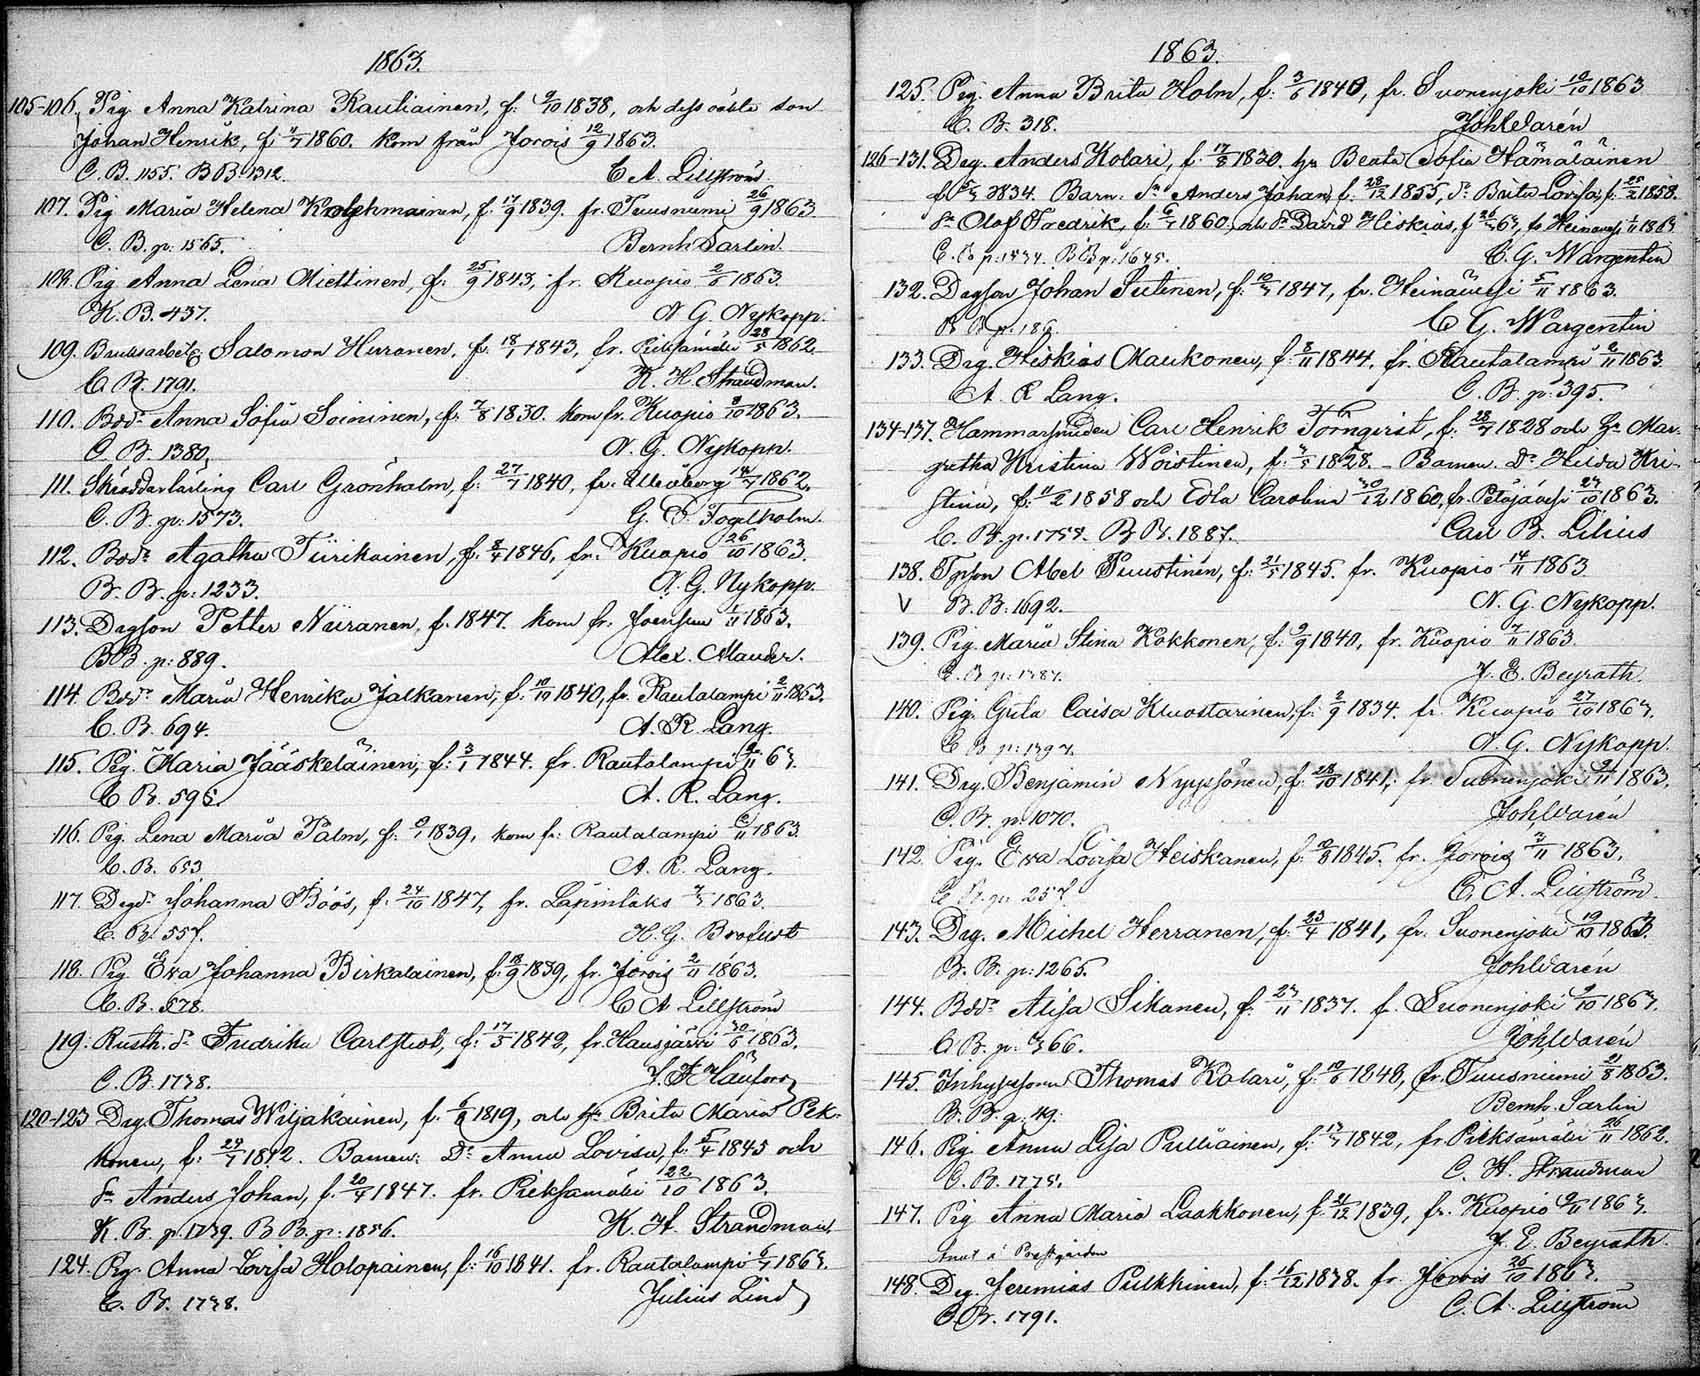 1863.
105-106. Pig Anna Katrina Rautiainen, f: 9/10 1838, och dess oäkta son
Johan Henrik, f. 1860. kom från Jorois 12/9 1863.
C. B. 1155. B B 1312. C A. Lillström
107. Pig Maria Helena f: 17/9 1839. fr. Tuusniemi 26/9 1863
C. B. p: 1565. Bernh Sarlin
108. Pig Anna Lena Miettinen, f: 25/9 1843, fr. Kuopio 1863.
K. B. 437. N G. Nykopp.
109. Bruksarbet. Salomon Hirvonen, f: 18/1 1843, fr. Pieksämäki 28/5 1862.
C. B. 1791. K. H Strandman.
110. Bdr Anna Sofia Soininen, f: 7/8 1830. kom fr. Kuopio 9/10 1863.
C. B. 1380. N. G. Nykopp.
111. Skräddarlärling Carl Grönholm, f: 27/1 1840, fr. Uleåborg 14/7 1862.
C. B. p: 1573. G. S. Fogelholm.
112. Bdr Agatha Tiirikainen, f: 8/4 1846, fr. Kuopio 26/10 1863.
B. B. p: 1233. N. G. Nykopp.
113. Dagson Petter Niiranen, f. 1847. kom fr. Joensuu 1/11 1863.
BB. p: 889. Alex. Alander.
114. Bdr Maria Henrika Jalkanen, f: 10/10 1840, fr. Rautalampi 2/11 1863.
C. B. 694. A. R. Lang.
115. Pig. Maria Jääskeläinen, f: 3/1 1844. fr. Rautalampi 63.
C B. 595. A. R. Lang.
116. Pig. Lena Maria Palm, f: 1839, kom fr: Rautalampi 1863.
C. B. 653 A. R. Lang.
117. Degdr Johanna Böös, f: 24/10 1847, fr. Lapinlaks 1863.
C. B. 557. H. G. Brofust
118. Pig Eva Johanna Birkalainen, f: 18/9 1839, fr. Jorois 2/11 1863.
C. B. 578. C A Lillström
119. Rusth. dr Fredrika Carlstedt, f: 17/5 1842, fr. Hausjärvi 1863.
C. B. 1738.
120-123 Drg. Thomas Wiljakainen, f. 1819, och hu Brita Maria Pek-
konen, f: 27/7 1812. Barnen: Dr Anna Lovisa, f: 1845 och
Sn Anders Johan, f. 20/4 1847. fr. Pieksämäki 22/10 1863.
K B. p. 1739. B B. p: 1856. K. H. Strandman.
124. Pig. Anna Lovisa Holopainen, f: 16/10 1841. fr. Rautalampi 1863.
C. B. 1738. Julius Lind
1863.
125. Pig. Anna Brita Holm, f: 3/6 1840, fr. Suonenjoki 10/10 1863
C. B. 318. Joh Warén
126-131. Drg. Anders Kolari, f. 17/5 1830, hu Beata Sofia Hämäläinen
f. 1834. Barn: Sn Anders Johan, f. 28/12 1855, dr Brita Lovisa, f: 25/2 1858.
Sn Olof Fredrik, f: 1860, och Sn David Hiskias, f 63, fr Heinävesi 1863
C. B p: 1534. BB p: 1645. C. G. Wargentin
132. Dagson Johan Sutinen, f: 1847, fr. Heinävesi 5/11 1863.
B B p: 186. C G. Wargentin
133. Drg. Hiskias Maukonen, f: 8/11 1844, fr. Rautalampi 2/11 1863
A. R Lang. C. B. p: 395.
134-137. Hammarsmeden Carl Henrik Törnqvist, f: 28/7 1828 och Hu Mar-
gretha Kristina Woistinen, f: 1828. - Barnen. Dr Hilda Kri-
stina, f: 11/2 1858 och Edla Carolina 30/12 1860, fr. Petäjävesi 27/10 1863.
C. B. p. 1757. B B. 1887. Carl B. Lilius
138. Tpson Abel Puustinen, f: 21/5 1845. fr. Kuopio 14/11 1863
V B. B: 1692. N. G. Nykopp.
139. Pig. Maria Stina Kokkonen, f: 9/9 1840, fr. Kuopio 7/11 1863.
C. B p: 1387. J. E. Beyrath.
140. Pig. Greta Caisa Kluostarinen, f: 2/9 1834. fr. Kuopio 27/10 1863.
C B p: 1397. N. G. Nykopp.
141. Drg. Benjamin Nyyssönen, f: 28/10 1841, fr Suonenjoki 2/11 1863.
C. B. p. 1070. Joh Warén
142. Pig. Eva Lovisa Heiskanen, f. 1845. fr. Jorois 3/11 1863.
C B. p: 257. C. A. Lillström
143. Drg. Michel Herranen, f: 23/4 1841, fr. Suonenjoki 19/10 1863.
B. B. p: 1265. Joh Warén
144. Bddr Alisa Sikanen, f: 27/11 1837. f. Suonenjoki 9/10 1863.
C B. p: 366. Joh Warén
145. Inhysson Thomas Kolari, f: 10/6 1848, fr. Tuusniemi 21/8 1863.
B. B. p: 49. Bernh. Sarlin
146. Pig. Anna Lisa Pulliainen, f: 1842, fr. Pieksämäki 26/11 1862.
C. B. 1775. C. H. Strandman
147. Pig Anna Maria Laakkonen, f: 21/12 1839, fr. Kuopio 1863.
Prestgården J. E. Beyrath.
148. Drg. Jeremias Pulkkinen, f: 15/12 1838. fr. Jorois 20/10 1863.
C. B. 1791. C. A. Lillström